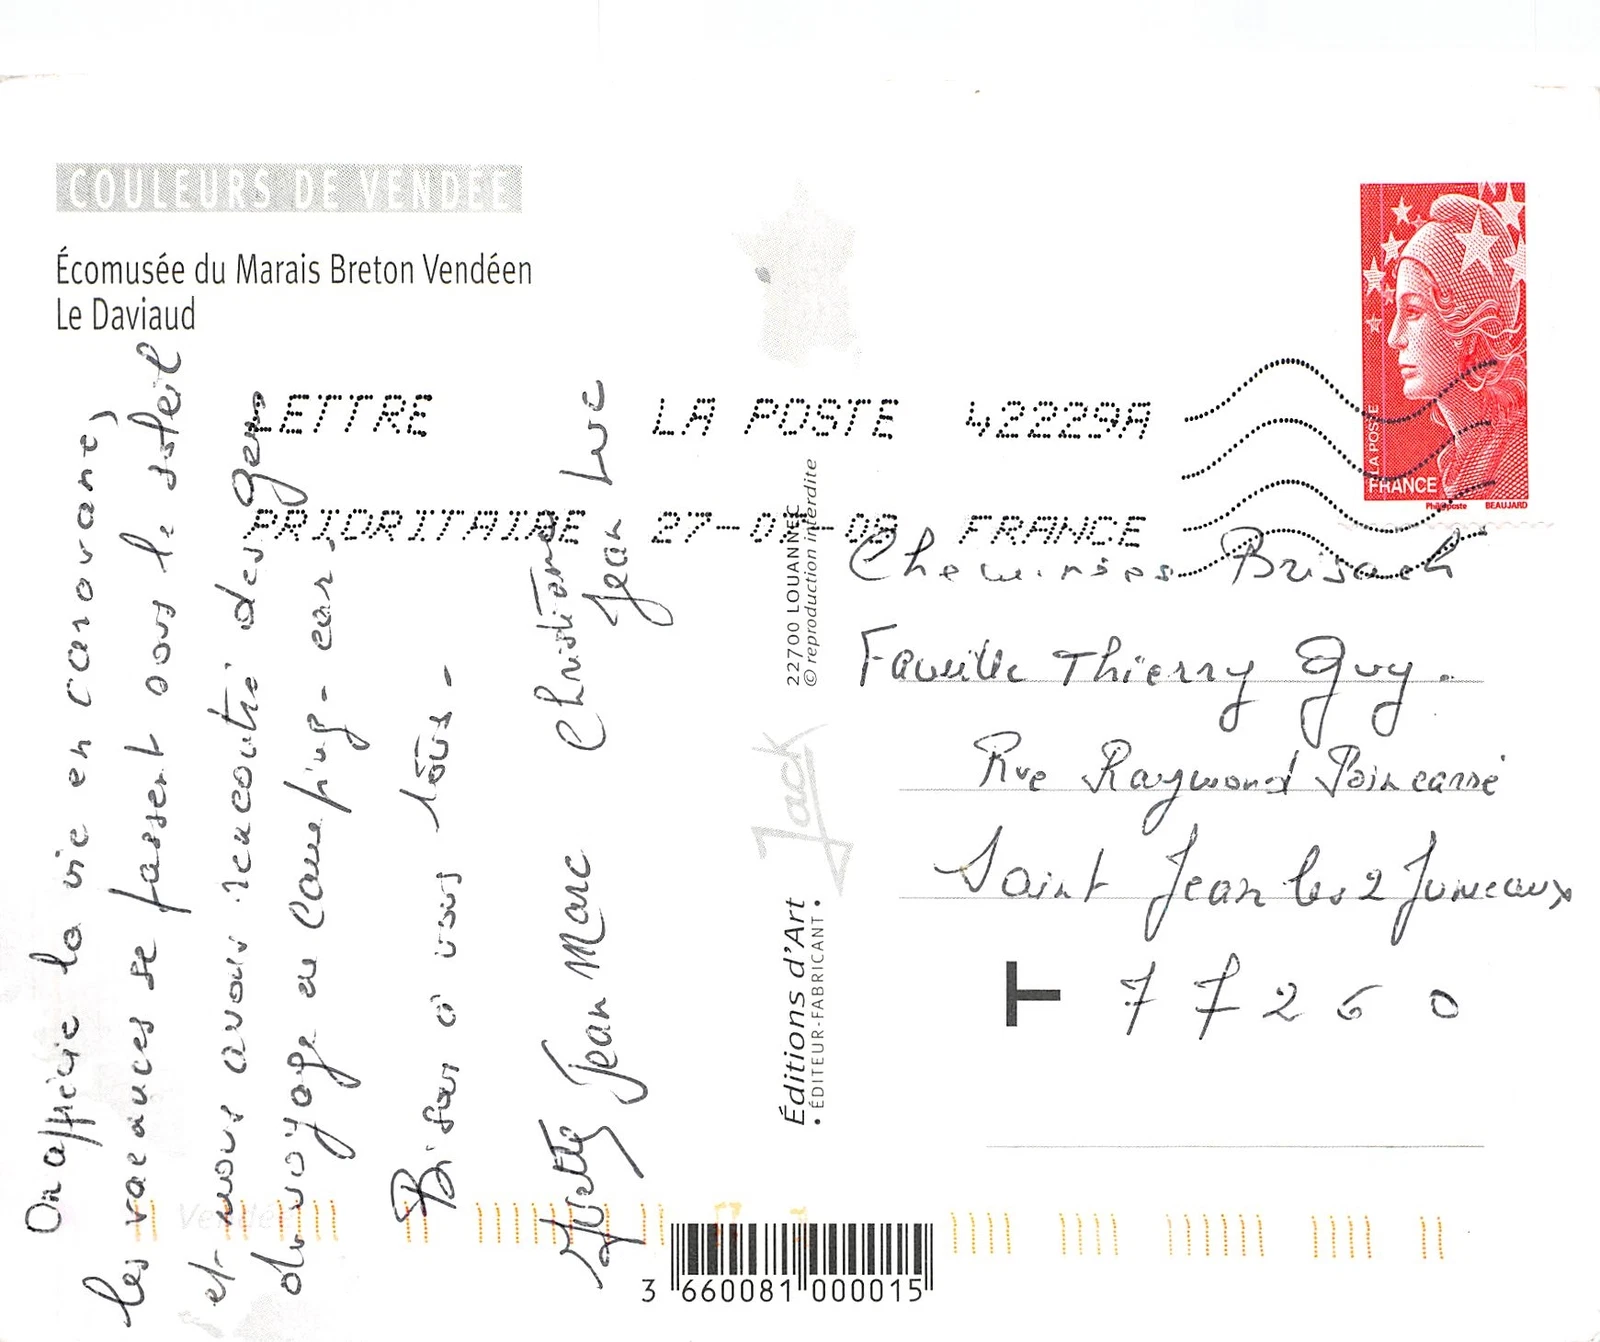 COULEURS DE VENDÉE
Écomusée du Marais Breton Vendéen
Le Daviaud
On apprécie la vie en caravane,
les vacances se passent sous le soleil
et nous avons rencontré des gens
du voyage au camping-car.
Bisous à vous tous -
Yvette Jean Marc Christiane
Jean Luc
LETTRE LA POSTE 42229A
PRIORITAIRE 27- FRANCE
LA POSTE
FRANCE
Phil@poste BEAUJARD
22700 LOUANNEC
© reproduction interdite
Jack
Éditions d'Art
• ÉDITEUR-FABRICANT •
Cheminées Brisach
Famille Thierry Guy.
Rue Raymond Poincarré
Saint Jean les 2 Jumeaux
T 77260
Vendée
3 660081 000015